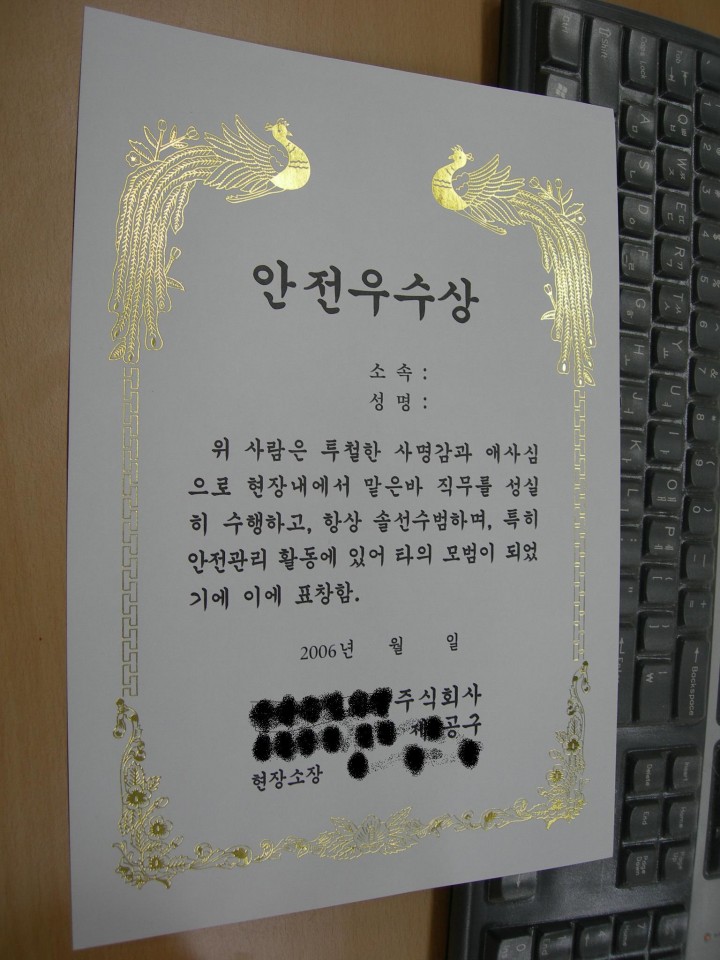 안전우수상
소 속 :
성 명 :
위 사람은 투철한 사명감과 애사심
으로 현장내에서 맡은바 직무를 성실
히 수행하고, 항상 솔선수범하며, 특히
안전관리 활동에 있어 타의 모범이 되었
기에 이에 표창함.
2006년 월 일
주식회사
제 공구
현장소장